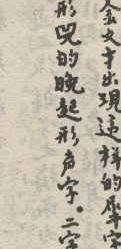 金文才出現這样的声字
形兕的晚起形声字。二字